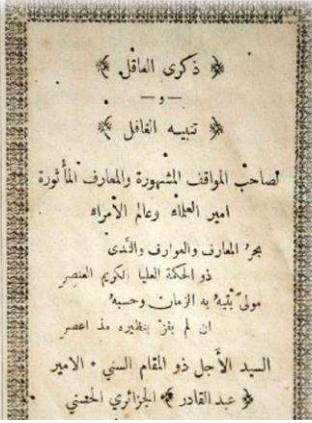 ﴿ ذكرى العاقل ﴾
— و —
﴿ تنبيه الغافل ﴾
لصاحب المواقف المشهورة والمعارف المأثورة
امير العلماء وعالم الأمراء
بحرُ المعارف والعوارف والنَّدى
ذو الحكمة العليا الكريم العنصر
مولىً يتيهُ به الزمان وحسبهُ
ان لم يفزْ بنظيره مذ اعصر
السيد الأجل ذو المقام السني • الامير
﴿ عبد القادر ﴾ الجزائري الحسني